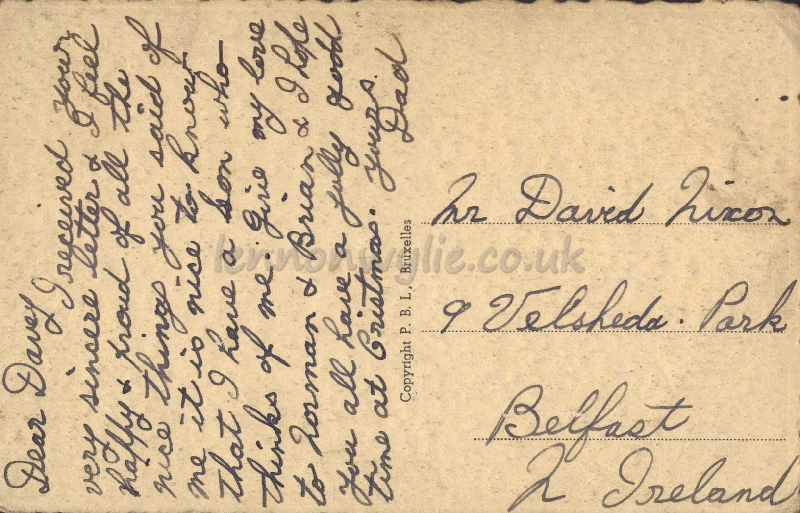 Dear Davey
I received your
very sincere letter & I feel
happy & proud of all the
nice things you said of
me it is nice to know
that I have a son who
thinks of me. Give my love
to Norman & Brian & I hope
you all have a jolly good
time at Cristmas. Yours.
Dad
Copyright P. B. L., Bruxelles
Mr David Nixon
9 Velsheda. Park
Belfast
N Ireland
lennonwylie.co.uk